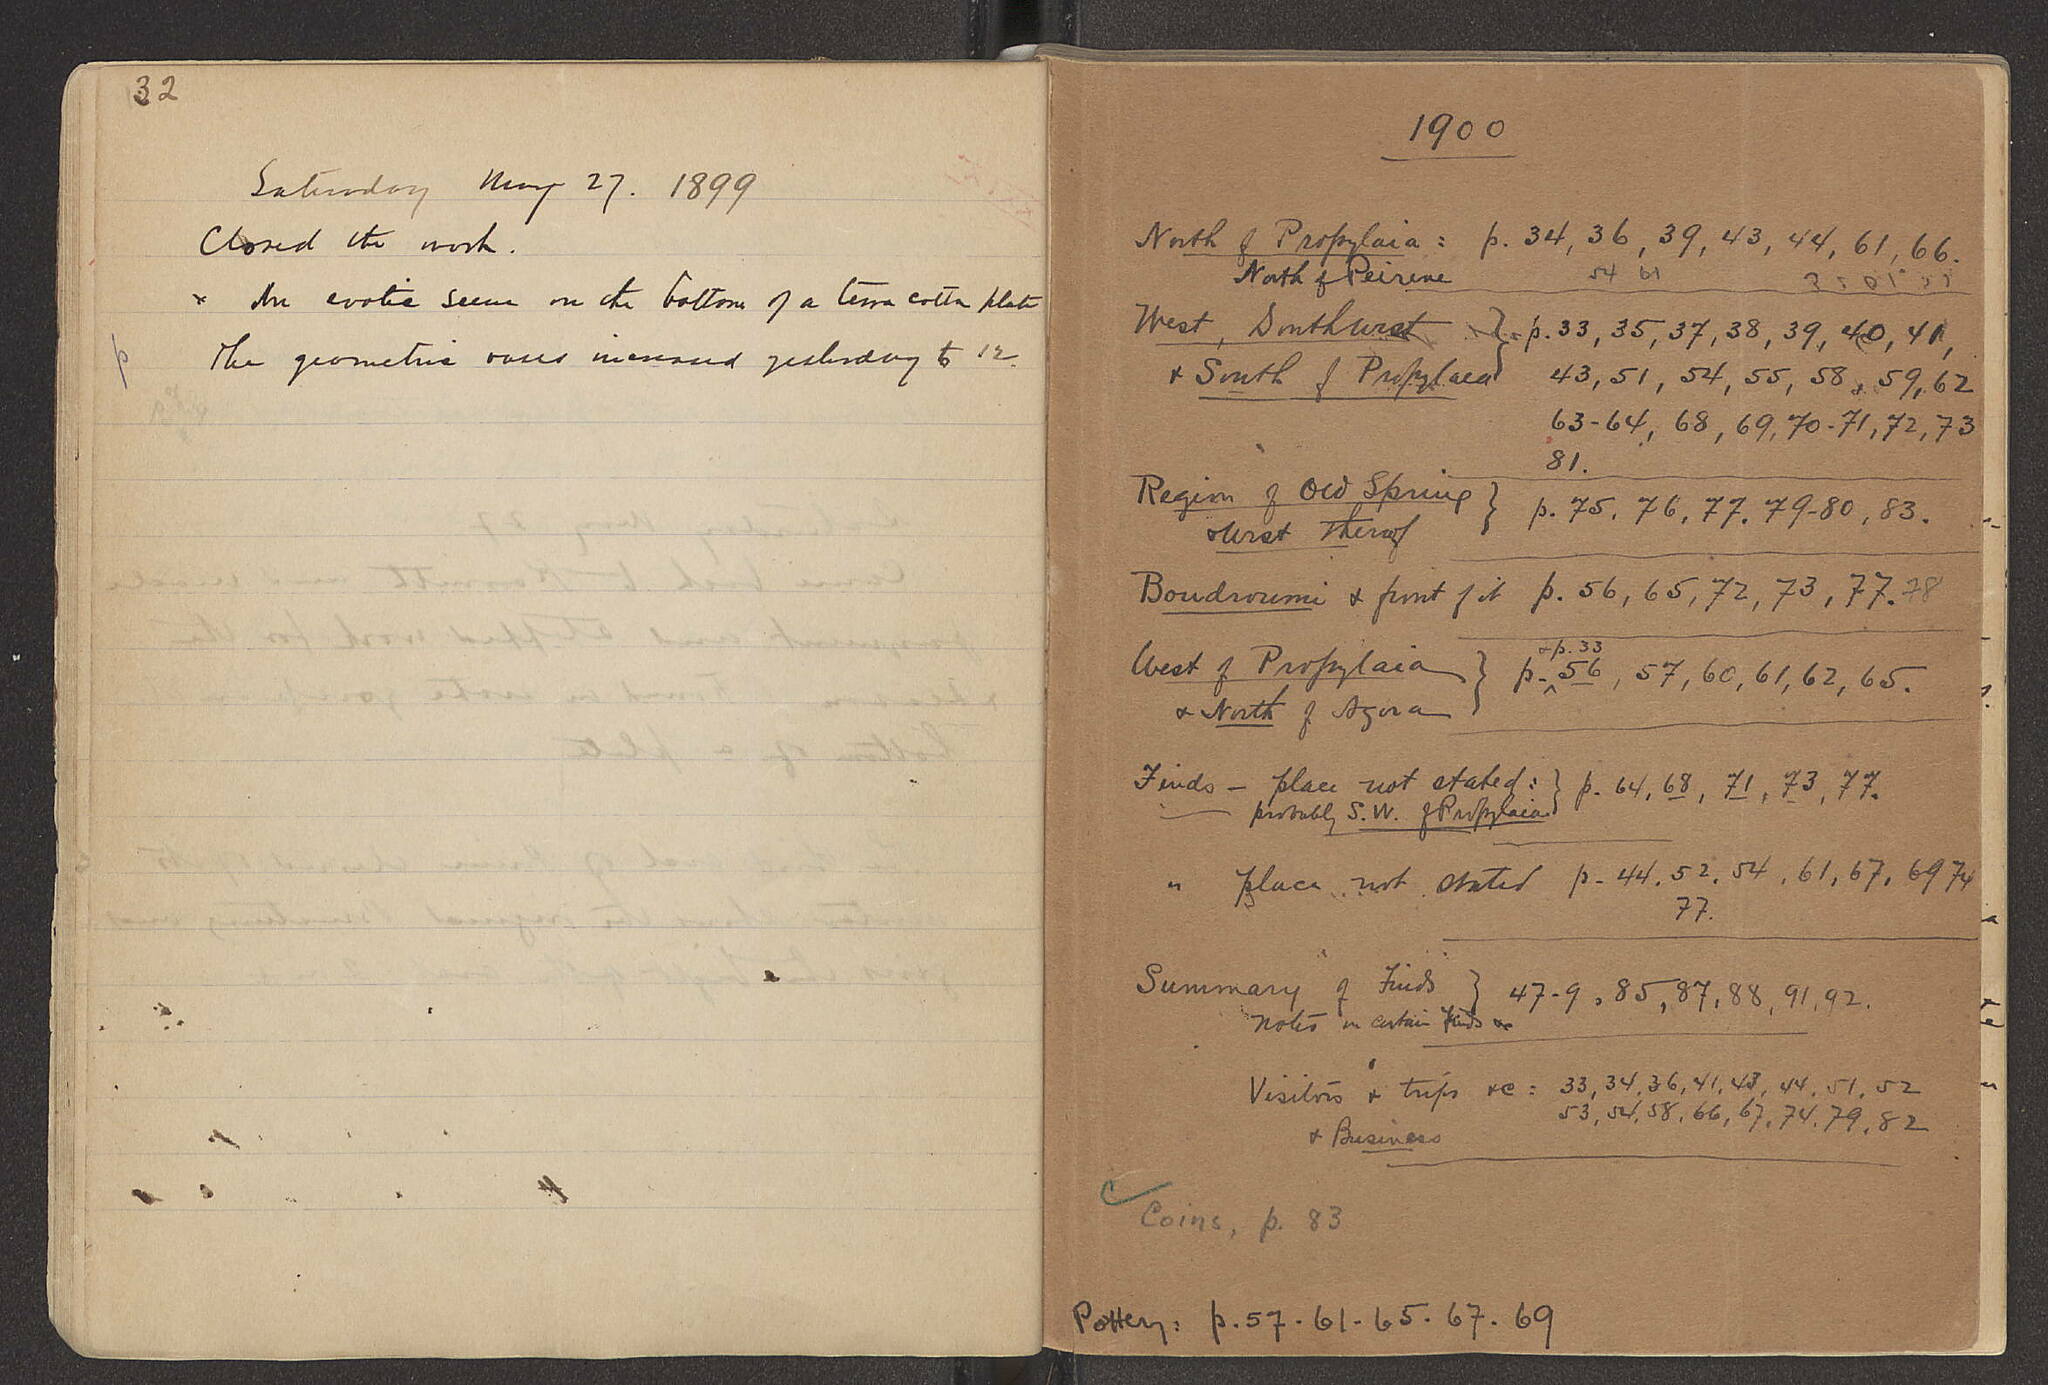 32
Saturday May 27. 1899
Closed the work.
x An erotic scene on the bottom of a terra cotta plate
The geometric vases increased yesterday to 12.
1900
North of Propylaia: p. 34, 36, 39, 43, 44, 61, 66.
North of Peirene 54 61
West, Southwest } p. 33, 35, 37, 38, 39, 40, 41,
& South of Propylaea 43, 51, 54, 55, 58, 59, 62
63-64, 68, 69, 70-71, 72, 73
81.
Region of Old Spring } p. 75, 76, 77, 79-80, 83.
& West thereof
Boudroumi & front of it p. 56, 65, 72, 73, 77. 78
& p. 33
West of Propylaia } p. 56, 57, 60, 61, 62, 65.
& North of Agora
Finds - place not stated: } p. 64, 68, 71, 73, 77.
probably S.W. of Propylaia
" place not stated p. 44, 52, 54, 61, 67, 69 74
77.
Summary of Finds } 47-9, 85, 87, 88, 91, 92.
Notes on certain finds
Visitors & trips &c: 33, 34, 36, 41, 43, 44, 51, 52
53, 54, 58, 66, 67, 74, 79, 82
& Business
Coins, p. 83
Pottery: p. 57. 61. 65. 67. 69